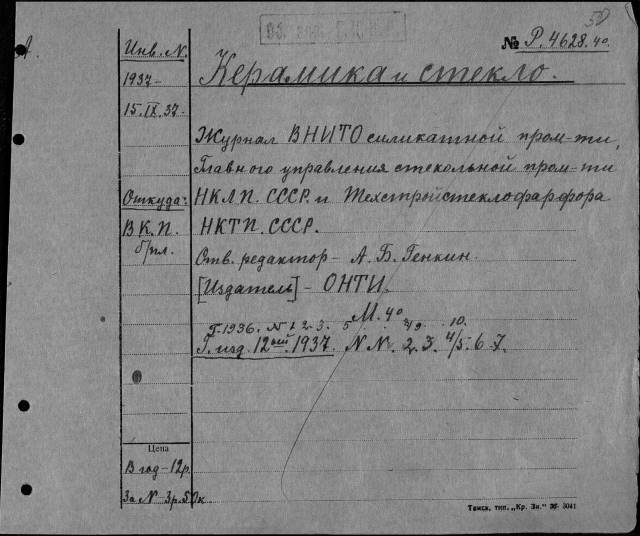 50
№ Р. 4628.40.
Инв. N.
1937-
15.IX.37-
Откуда:
В К. П.
б/пл.
Керамика и стекло.
Журнал ВНИТО силикатной пром-ти,
Главного управления стекольной пром-ти
НКЛП. СССР. и Техстройстеклофарфора
НКТП. СССР.
Отв. редактор - А. Б. Генкин.
[Издатель] - ОНТИ.
М. 4º
Г. 1936. N 1. 2. 3. 5 8/9 . 10.
Г. изд. 12ый. 1937. N N. 2. 3. 4/5. 6-7.
Цена
В год - 12 р.
За N - 3 р. 50 к
Томск, тип. „Кр. Зн.“ 36- 3041